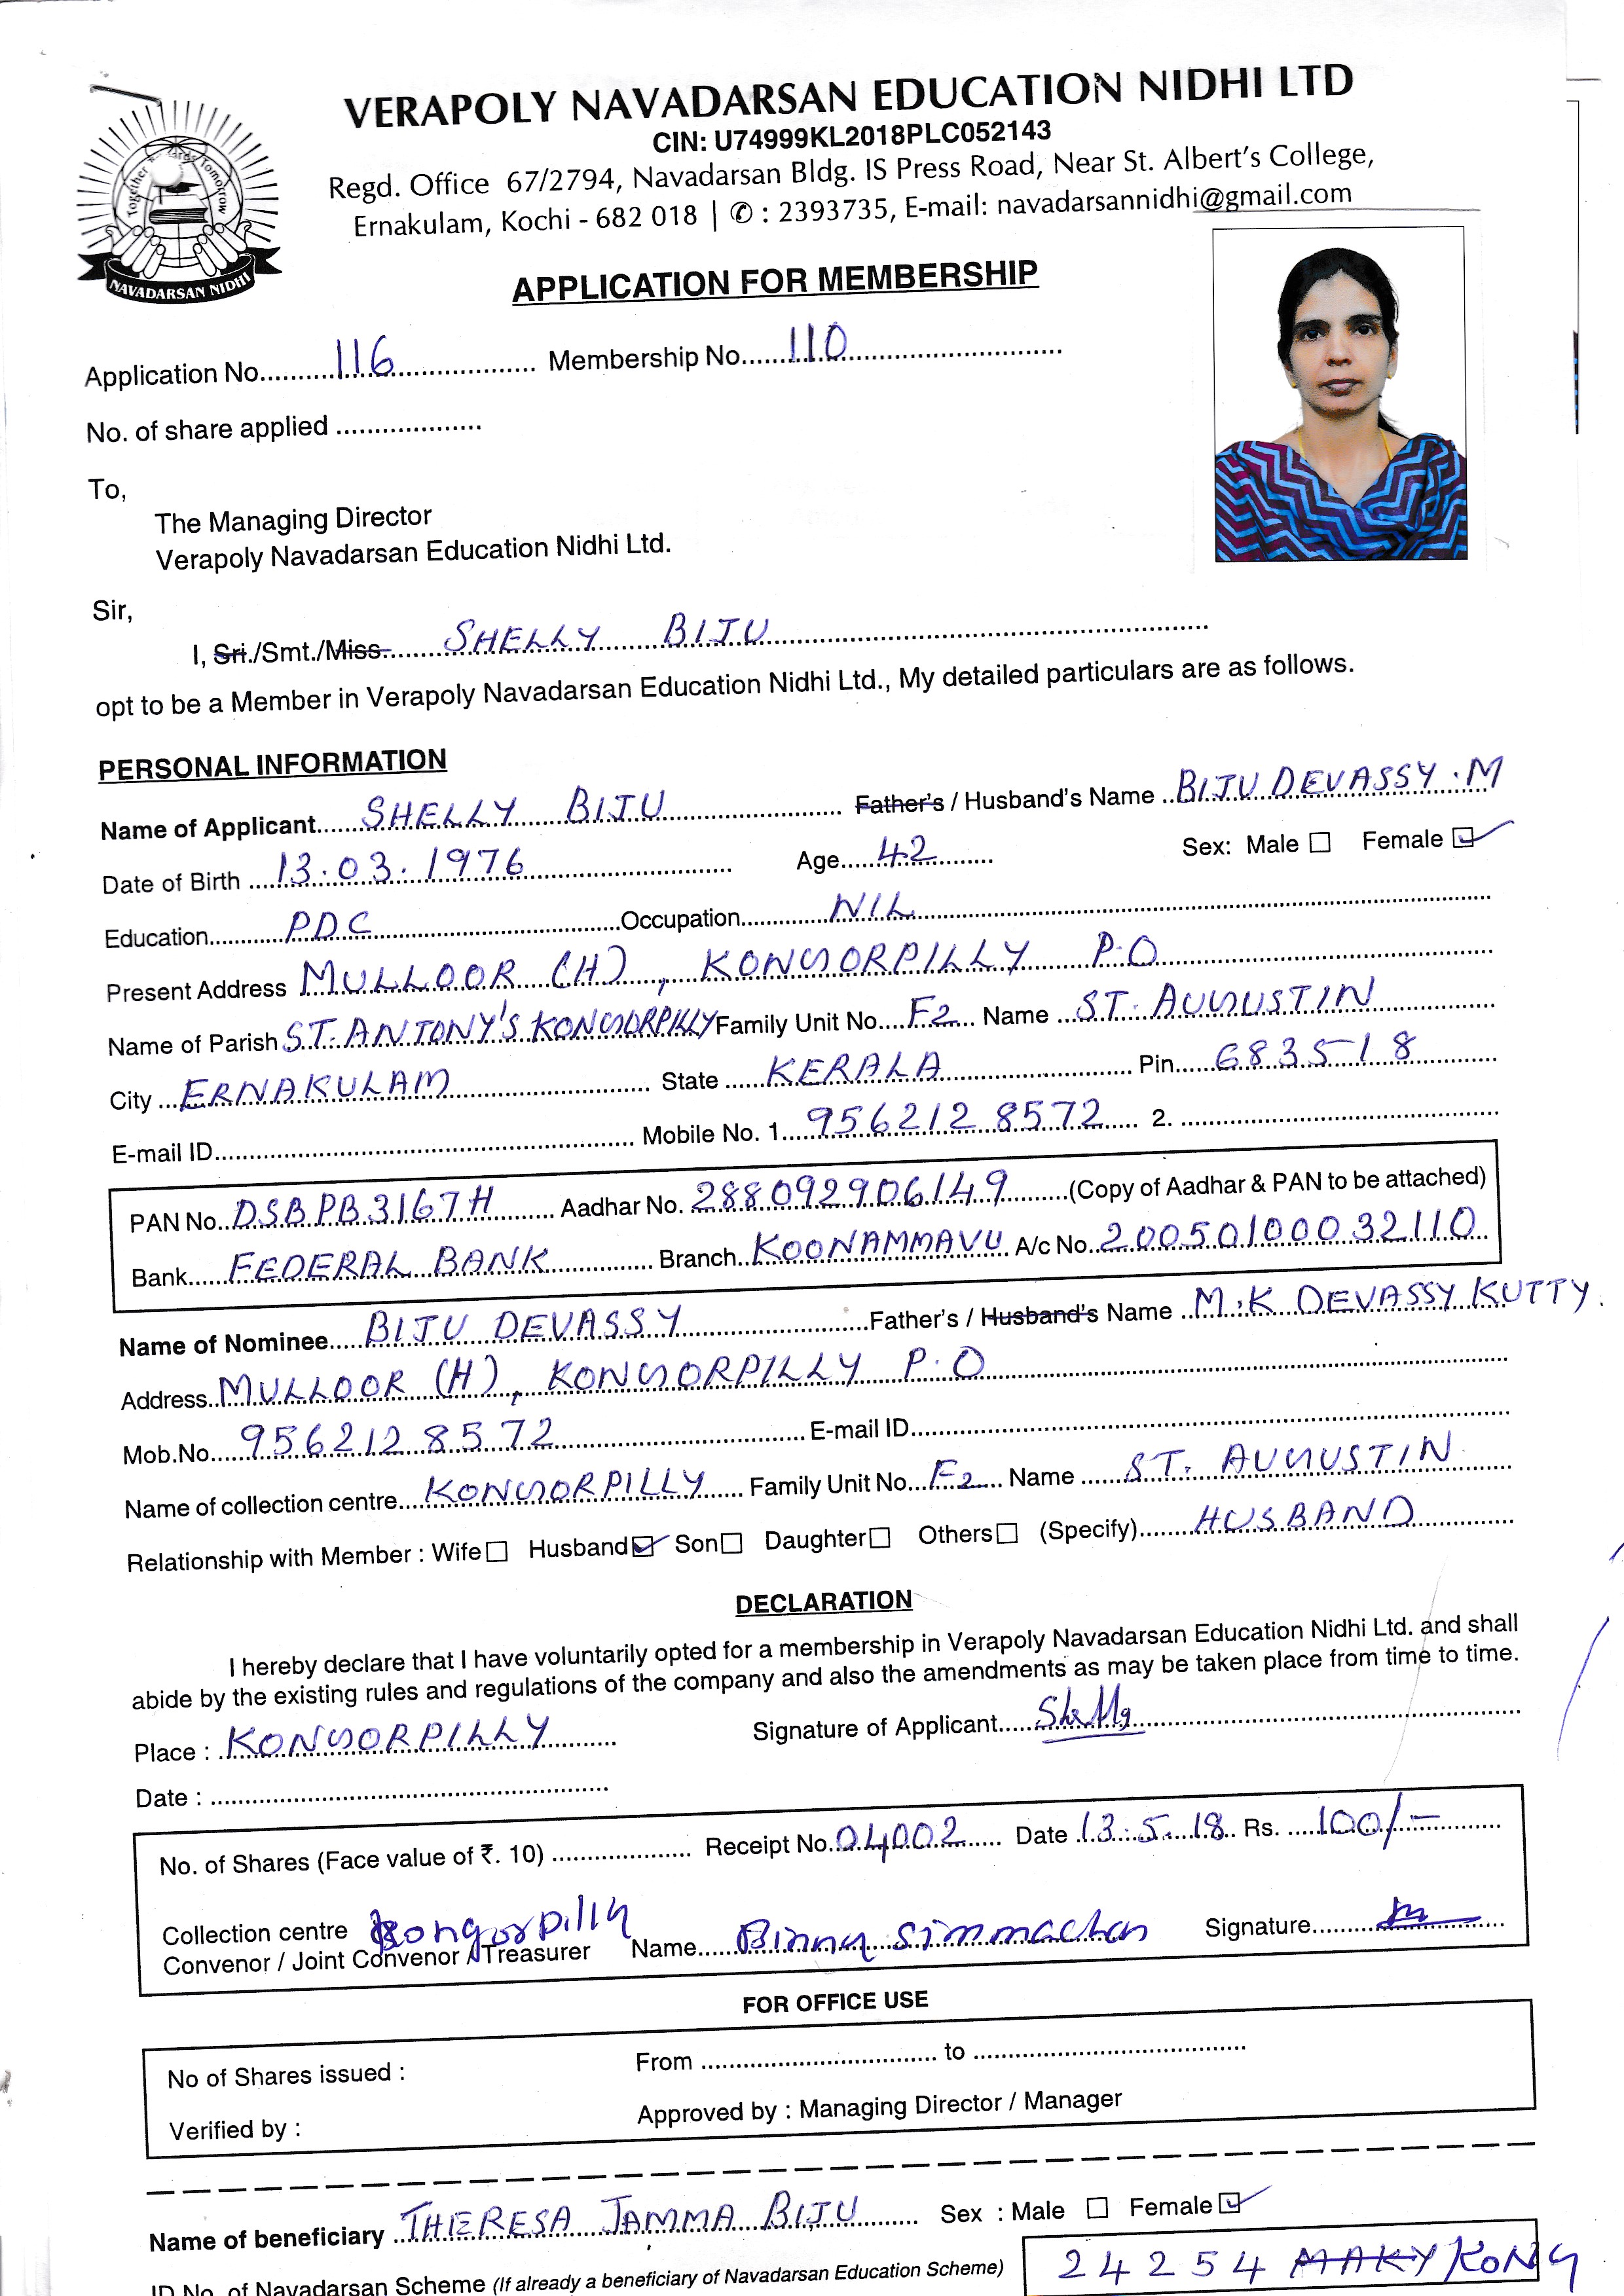 VERAPOLY NAVADARSAN EDUCATION NIDHI LTD
CIN: U74999KL2018PLC052143
Regd. Office 67/2794, Navadarsan Bldg. IS Press Road, Near St. Albert's College,
Ernakulam, Kochi - 682 018 | ✆ : 2393735, E-mail: navadarsannidhi@gmail.com
Together Towards Tomorrow
NAVADARSAN NIDHI
APPLICATION FOR MEMBERSHIP
Application No. 116 Membership No. 110
No. of share applied
To,
The Managing Director
Verapoly Navadarsan Education Nidhi Ltd.
Sir,
I, Sri./Smt./Miss. SHELLY BIJU
opt to be a Member in Verapoly Navadarsan Education Nidhi Ltd., My detailed particulars are as follows.
PERSONAL INFORMATION
Name of Applicant SHELLY BIJU Father's / Husband's Name BIJU DEVASSY.M
Date of Birth 13.03.1976 Age 42 Sex: Male ☐ Female ☑
Education PDC Occupation NIL
Present Address MULLOOR (H), KONGORPILLY P.O
Name of Parish ST. ANTONY'S KONGORPILLY Family Unit No. F2 Name ST. AUGUSTIN
City ERNAKULAM State KERALA Pin 683518
E-mail ID Mobile No. 1. 9562128572 2.
PAN No. DSBPB3167H Aadhar No. 288092906149 (Copy of Aadhar & PAN to be attached)
Bank FEDERAL BANK Branch KOONAMMAVU A/c No. 20050100032110
Name of Nominee BIJU DEVASSY Father's / Husband's Name M.K DEVASSY KUTTY.
Address MULLOOR (H), KONGORPILLY P.O
Mob.No. 9562128572 E-mail ID
Name of collection centre KONGORPILLY Family Unit No. F2 Name ST. AUGUSTIN
Relationship with Member : Wife ☐ Husband ☑ Son ☐ Daughter ☐ Others ☐ (Specify) HUSBAND
DECLARATION
I hereby declare that I have voluntarily opted for a membership in Verapoly Navadarsan Education Nidhi Ltd. and shall
abide by the existing rules and regulations of the company and also the amendments as may be taken place from time to time.
Place : KONGORPILLY Signature of Applicant Shelly
Date :
No. of Shares (Face value of ₹. 10) Receipt No. 04002 Date 13.5.18 Rs. 100/-
Collection centre Kongorpilly
Convenor / Joint Convenor / Treasurer Name Binny Simmachan Signature
FOR OFFICE USE
No of Shares issued : From to
Verified by : Approved by : Managing Director / Manager
Name of beneficiary THERESA JAMMA BIJU Sex : Male ☐ Female ☑
ID No. of Navadarsan Scheme (If already a beneficiary of Navadarsan Education Scheme) 24254 MAKY KONG